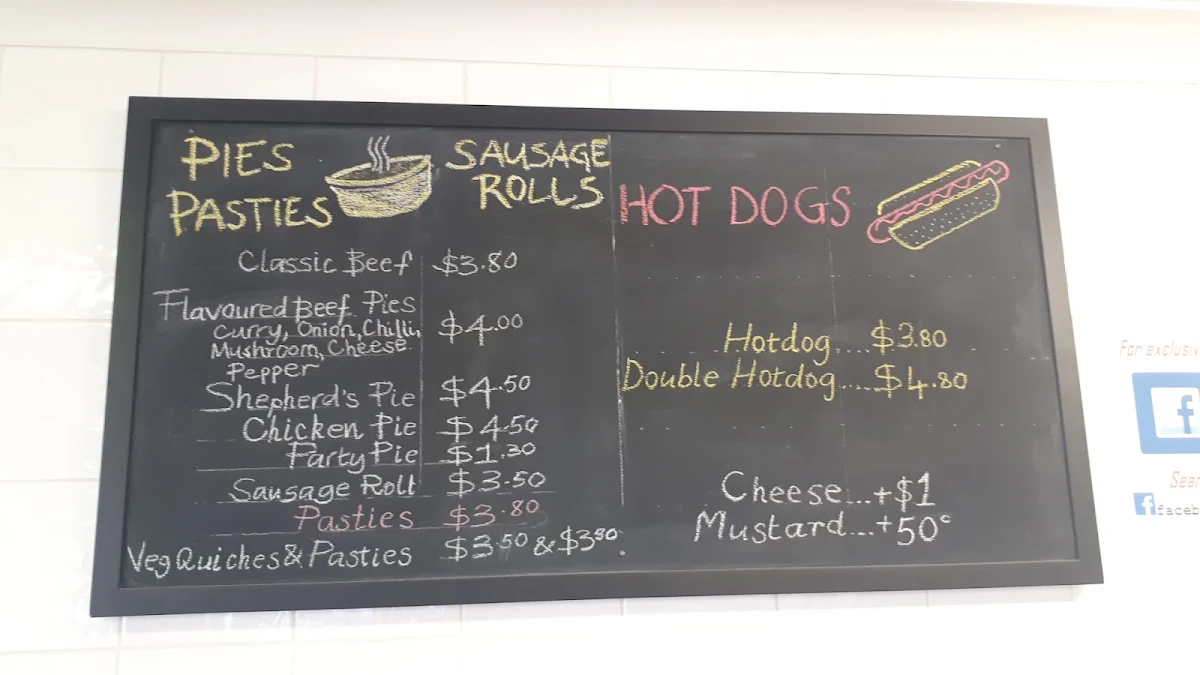 PIES
PASTIES
SAUSAGE
ROLLS
Classic Beef $3.80
Flavoured Beef Pies
Curry, Onion, Chilli, $4.00
Mushroom, Cheese
Pepper
Shepherd's Pie $4.50
Chicken Pie $4.50
Party Pie $1.30
Sausage Roll $3.50
Pasties $3.80
Veg Quiches & Pasties $3.50 & $3.80
HOT DOGS
Hotdog....$3.80
Double Hotdog....$4.80
Cheese...+$1
Mustard...+50c
For exclusiv
f
Sear
f faceb